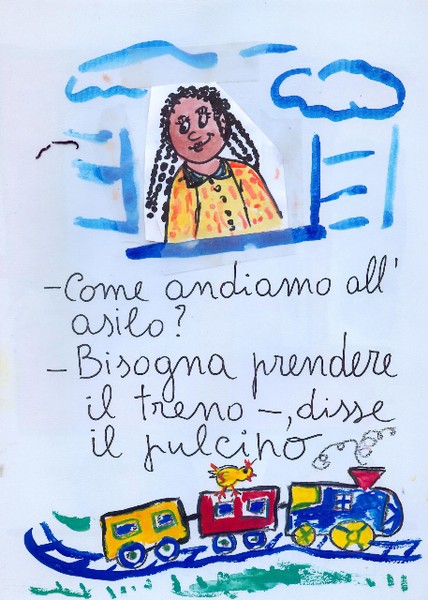 -Come andiamo all'
asilo?
- Bisogna prendere
il treno -, disse
il pulcino